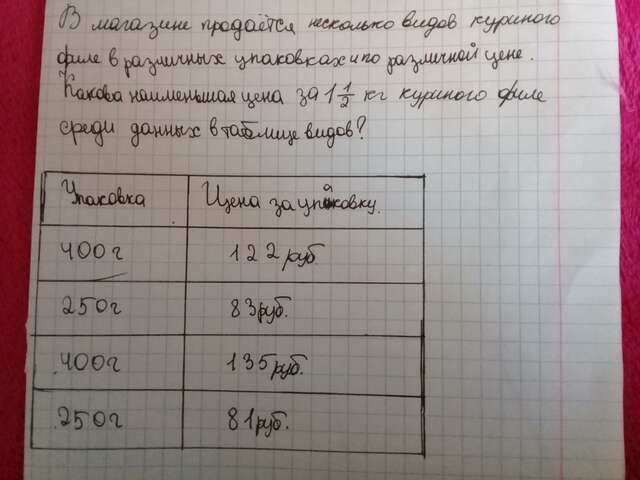 В магазине продаётся несколько видов куриного
филе в различных упаковках и по различной цене.
Какова наименьшая цена за 1 1/2 кг куриного филе
среди данных в таблице видов?
Упаковка Цена за упаковку.
400г 122 руб
250г 83руб.
400г 135руб.
250г 81руб.